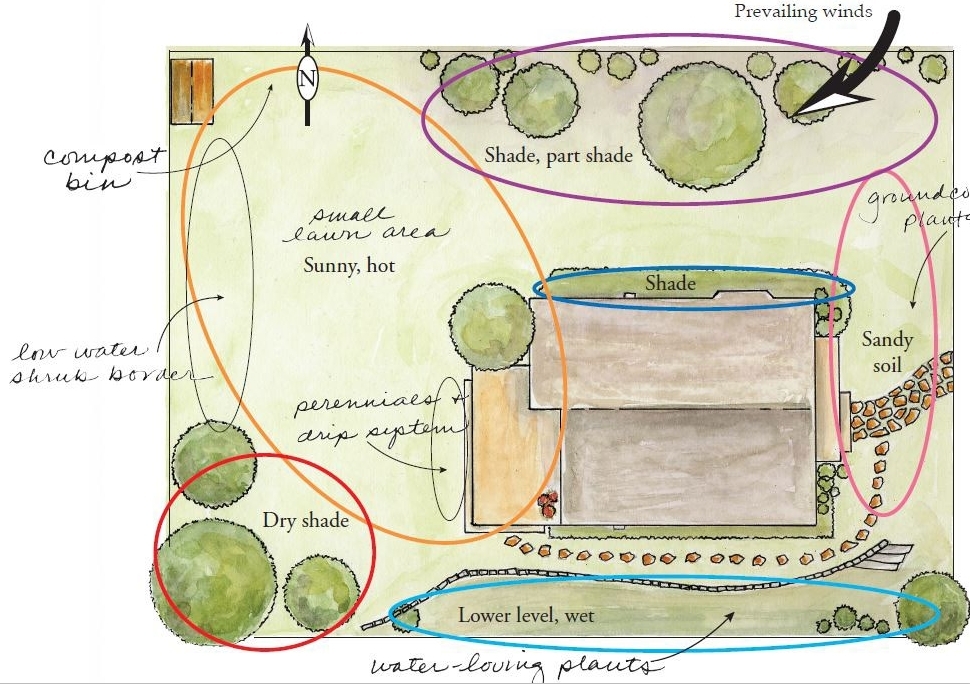 Prevailing winds
N
compost
bin
Shade, part shade
small
lawn area
Sunny, hot
groundco
plants
Shade
Sandy
soil
low water
shrub border
perennials +
drip system
Dry shade
Lower level, wet
water-loving plants